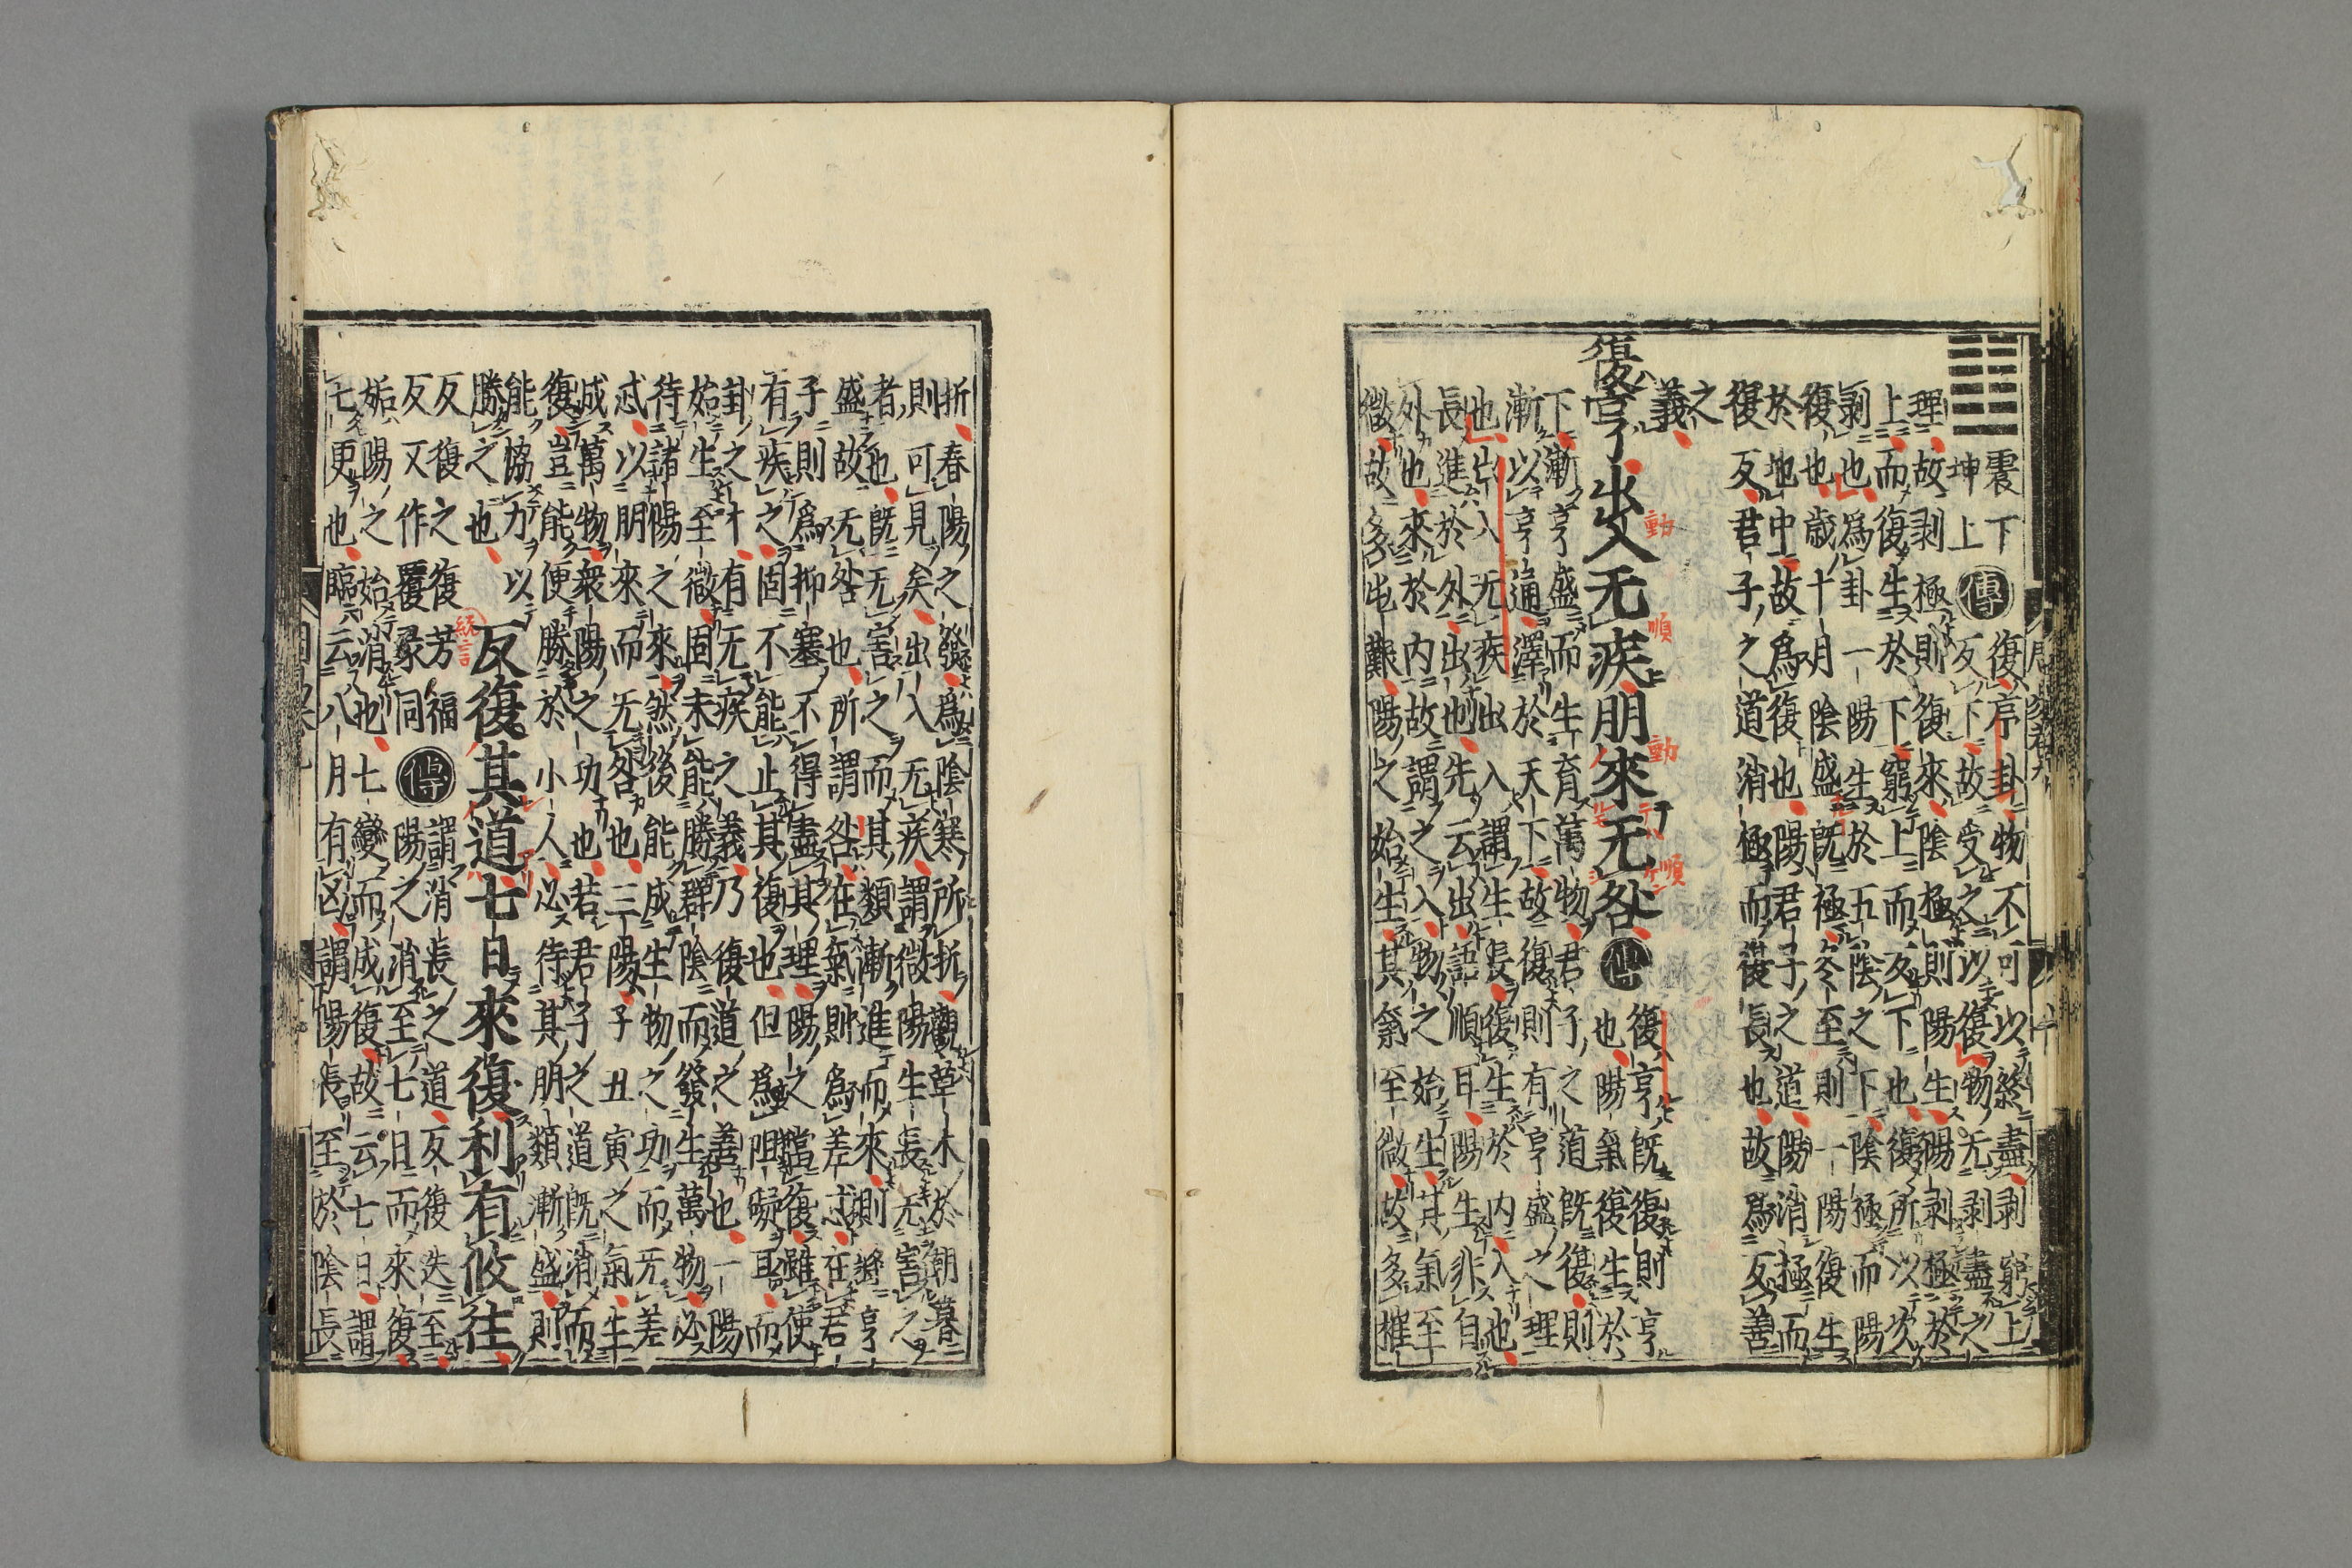 震下 傳 復序卦物不可以終盡剥窮上
坤上 反下故受之以復物无剥盡之
理故剥極則復來陰極則陽生陽剥極於
上而復生於下窮上而反下也復所以次
剥也爲卦一陽生於五陰之下陰極而陽
復也歳十月陰盛既極冬至則一陽復生
於地中故爲復也陽君子之道陽消極而
復反君子之道消極而復長也故爲反善
之
義
復亨出入无疾朋來无咎 傳 復亨既復則亨
也陽氣復生於
下漸亨盛而生育萬物君子之道既復則
漸以亨通澤於天下故復則有亨盛之理
也出入无疾出入謂生長復生於内入也
長進於外出也先云出語順耳陽生非自
外也來於内故謂之入物之始生其氣至
微故多屯艱陽之始生其氣至微故多摧
折春陽之發爲陰寒所折觀草木於朝暮
則可見矣出入无疾謂微陽生長无害之
者也既无害之而其類漸進而來則將亨
盛故无咎也所謂咎在氣則爲差忒在君
子則爲抑塞不得盡其理陽之當復雖使
有疾之固不能止其復也但爲阻礙耳而
卦之才有无疾之義乃復道之善也一陽
始生至微固未能勝群陰而發生萬物必
待諸陽之來然後能成生物之功而无差
忒以朋來而无咎也三陽子丑寅之氣生
成萬物衆陽之功也若君子之道既消而
復豈能便勝於小人必待其朋類漸盛則
能協力以
勝之也
反復其道七日來復利有攸往
反復之復芳福 傳 謂消長之道反復迭至
反又作覆彖同 陽之消至七日而來復
姤陽之始消也七變而成復故云七日謂
七更也臨云八月有凶謂陽長至於陰長